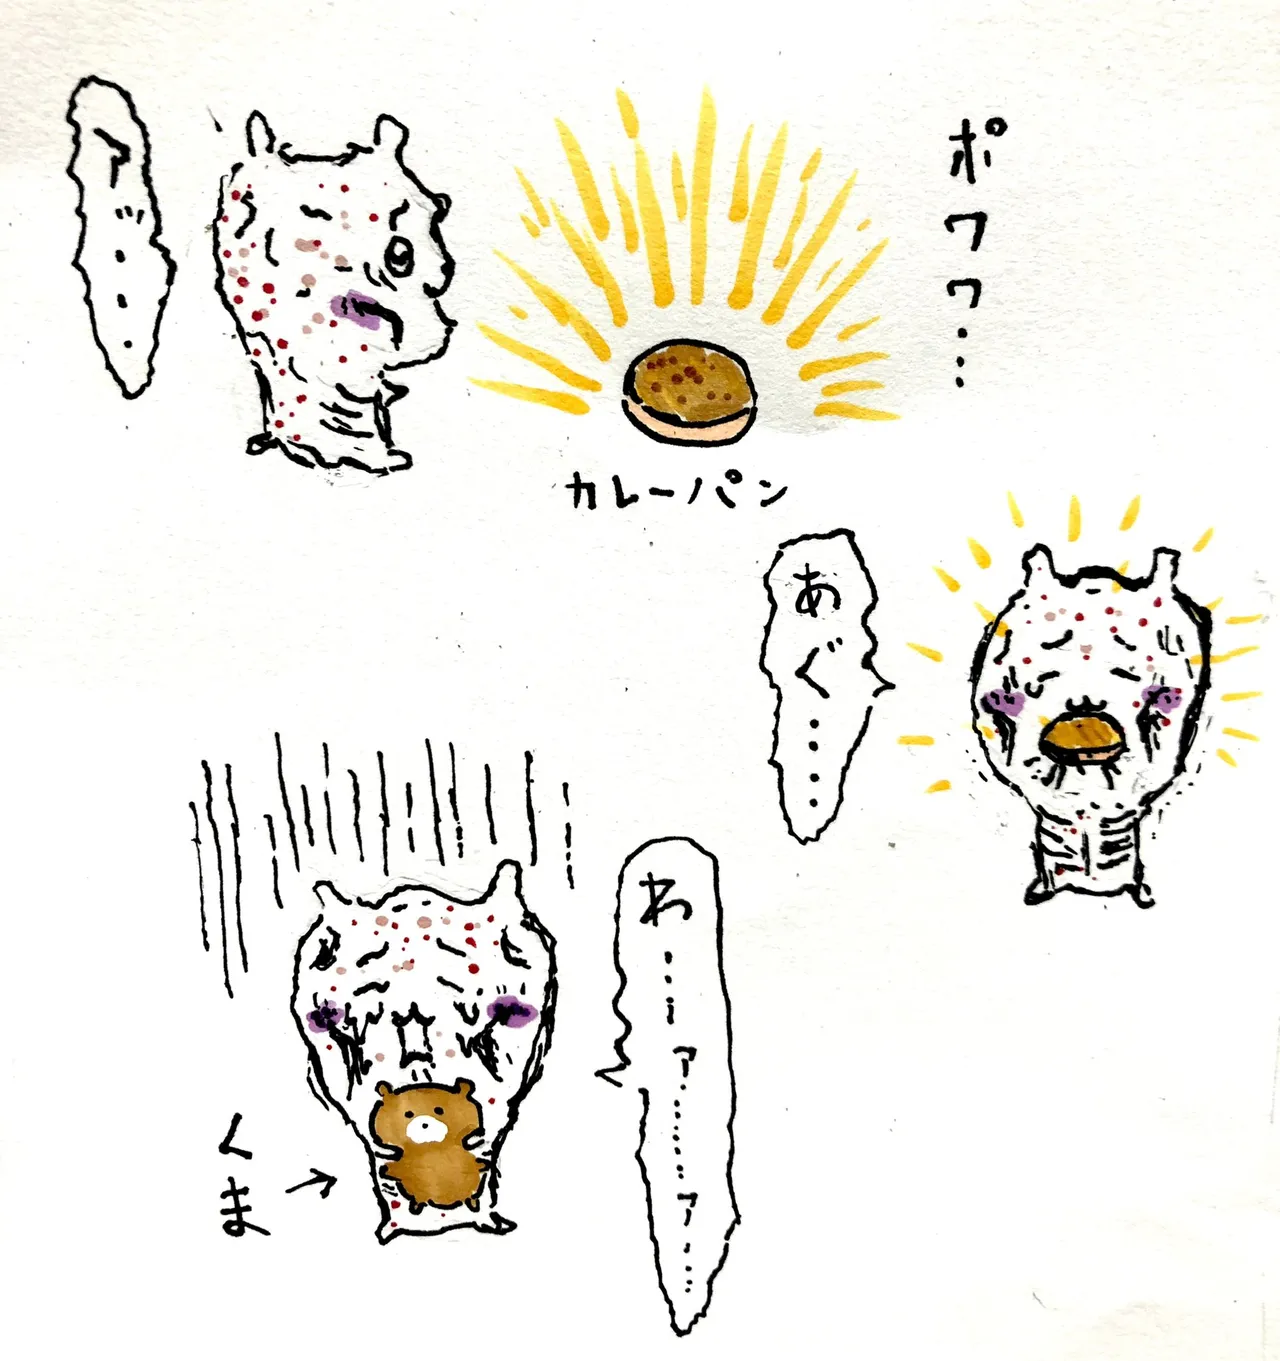 ポワワ・・・
ア"・・・
カレーパン
あぐ・・・・
わ・・・・ァ・・・・・・・ァ・・・・
くま